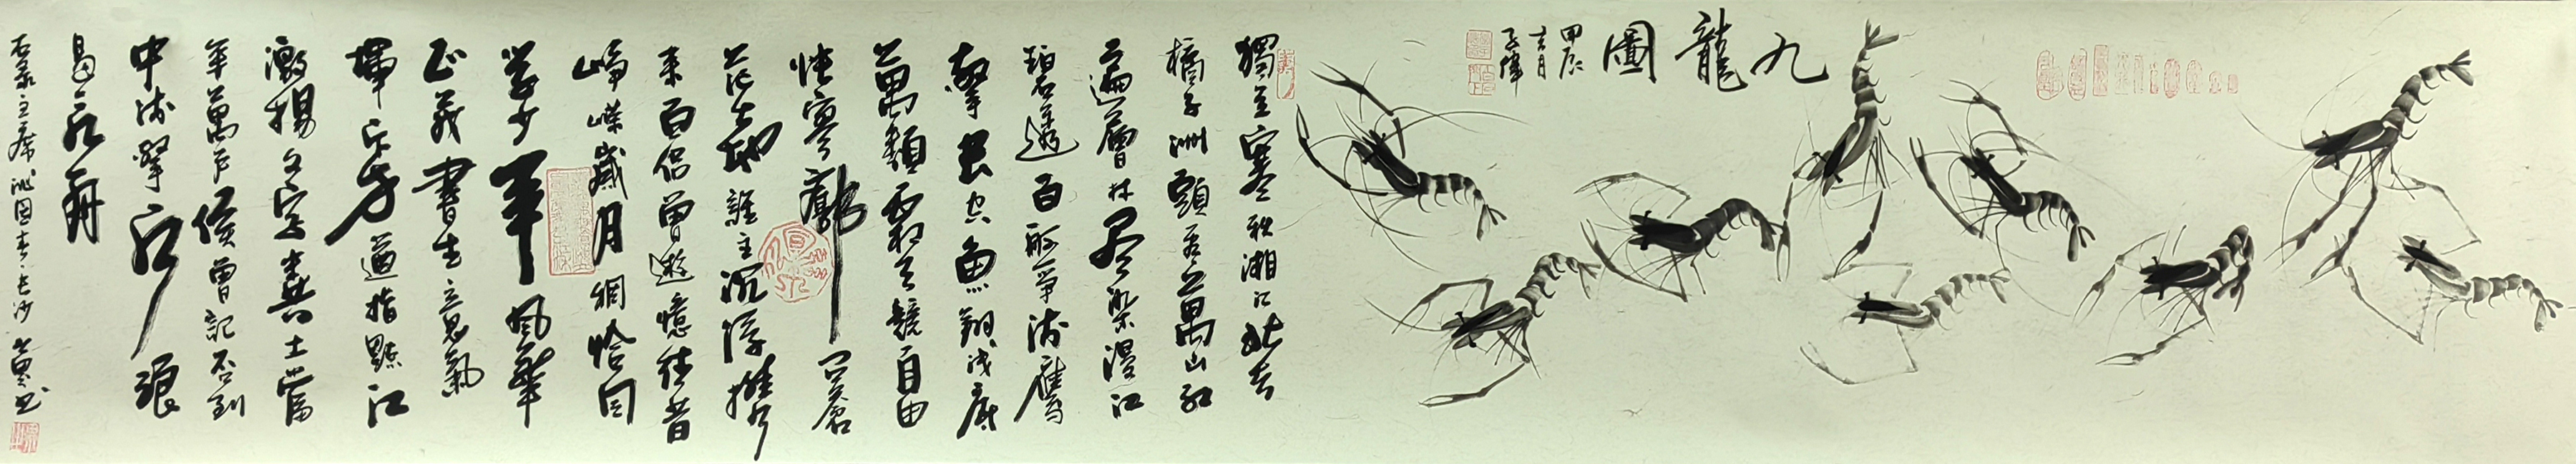 九龍圖
甲辰
獨立寒秋湘江北去
橘子洲頭看萬山紅
遍層林尽染漫江
碧透百舸爭流鷹
擊長空魚翔淺底
萬類霜天競自由
悵寥廓問蒼
茫大地誰主沉浮攜
來百侶曾遊憶往昔
崢嶸歲月稠恰同
學少年風華
正茂書生意氣
揮斥方遒指點江
激揚文字糞土當
年萬戶侯曾記否到
中流擊水浪
遏飛舟
右录主席沁园春·长沙